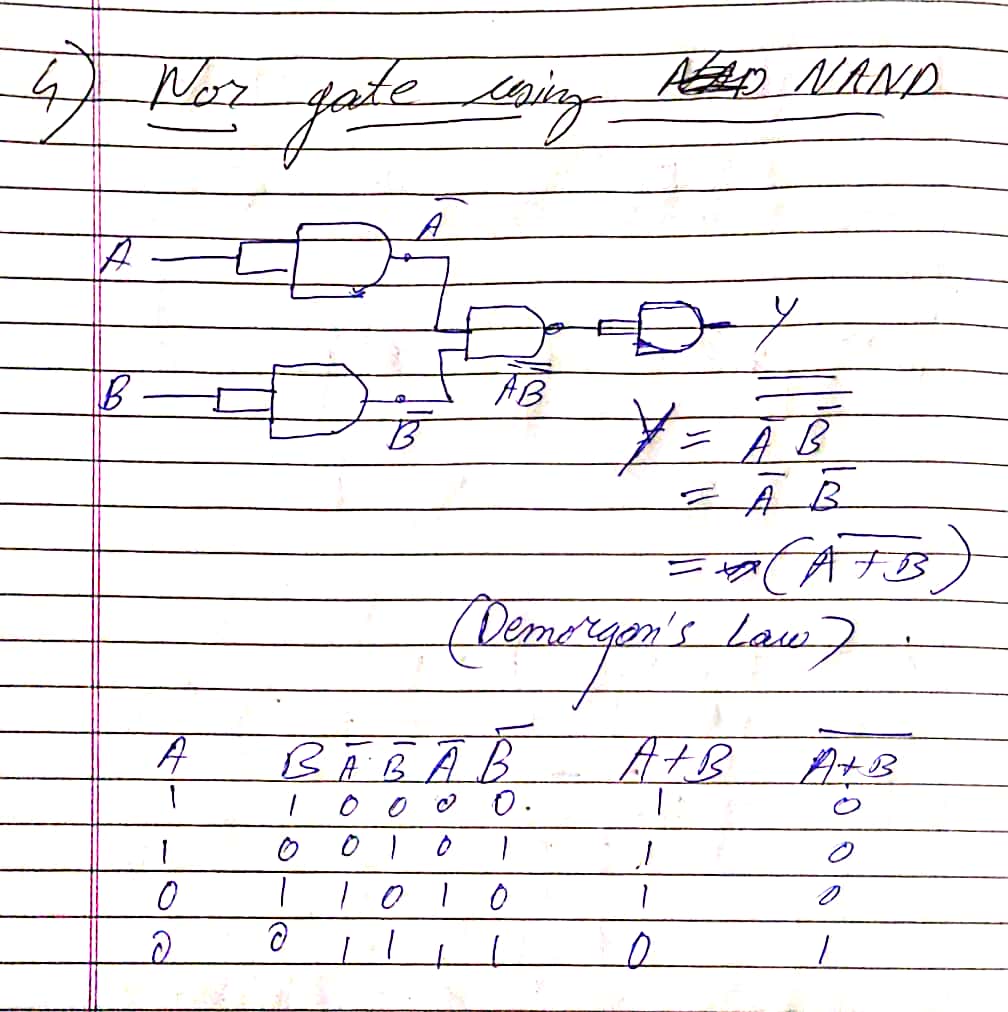 4) Nor gate using NAND
A̅
A
Y
B
A̅B̅
B̅
Y = A̅ B̅
= A̅ B̅
= (A+B)
(Demorgan's Law) .
A B A̅ B̅ A̅ B̅ A+B A+B
1 1 0 0 0 0. 1 0
1 0 0 1 0 1 1 0
0 1 1 0 1 0 1 0
0 0 1 1 1 1 0 1